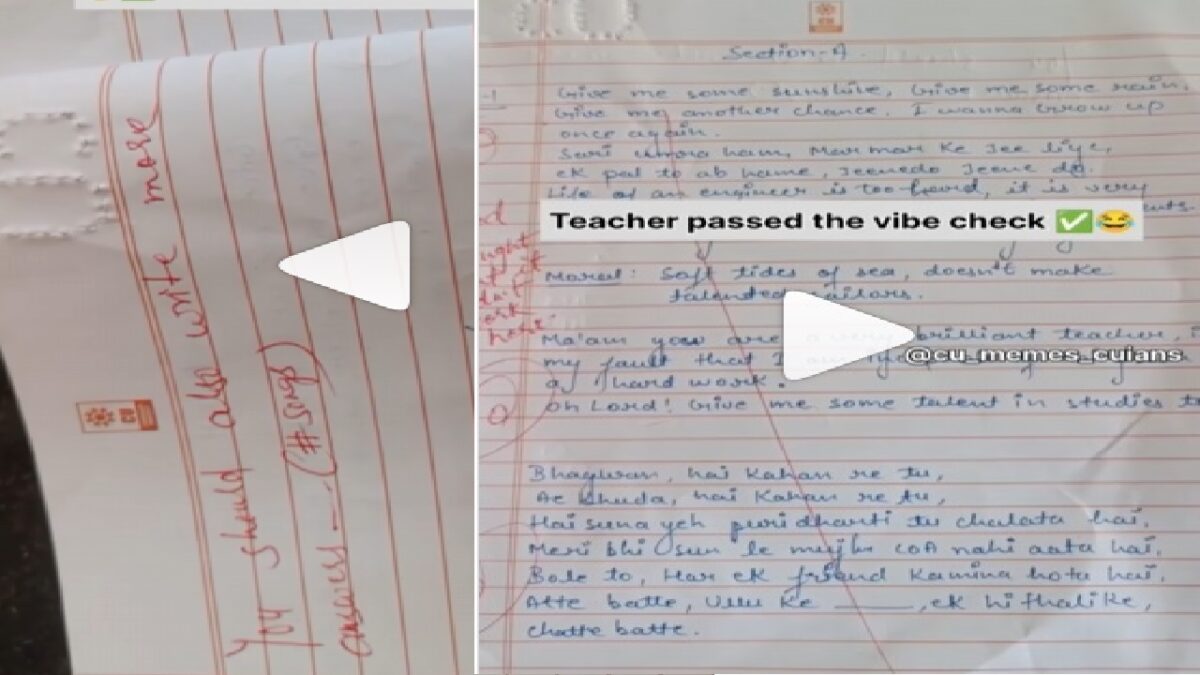 You should also write more
answers - - - (#songs)
CU
CU
Section-A
Give me some sunshine, Give me some rain,
Give me another chance, I wanna Grow up
once again.
Sari umra ham, Mar mar ke Jee liye,
ek pal to ab hame, Jeenedo Jeene do.
Life of an engineer is too hard, it is very
Teacher passed the vibe check ✅😂
Moral: Soft tides of sea, doesn't make
talented sailors.
Ma'am you are a very brilliant teacher,
my fault that I
@cu_memes_cuians
of hard work.
Oh Lord! Give me some talent in studies
Bhagwan, hai Kahan re tu,
Ae Khuda, hai Kahan re tu,
Hai suna yeh puri dharti tu chalata hai,
Meri bhi sun le mujhe COA nahi aata hai,
Bole to, Har ek friend Kamina hota hai,
Atte batte, Ullu ke ____, ek hi thali ke,
chatte batte.